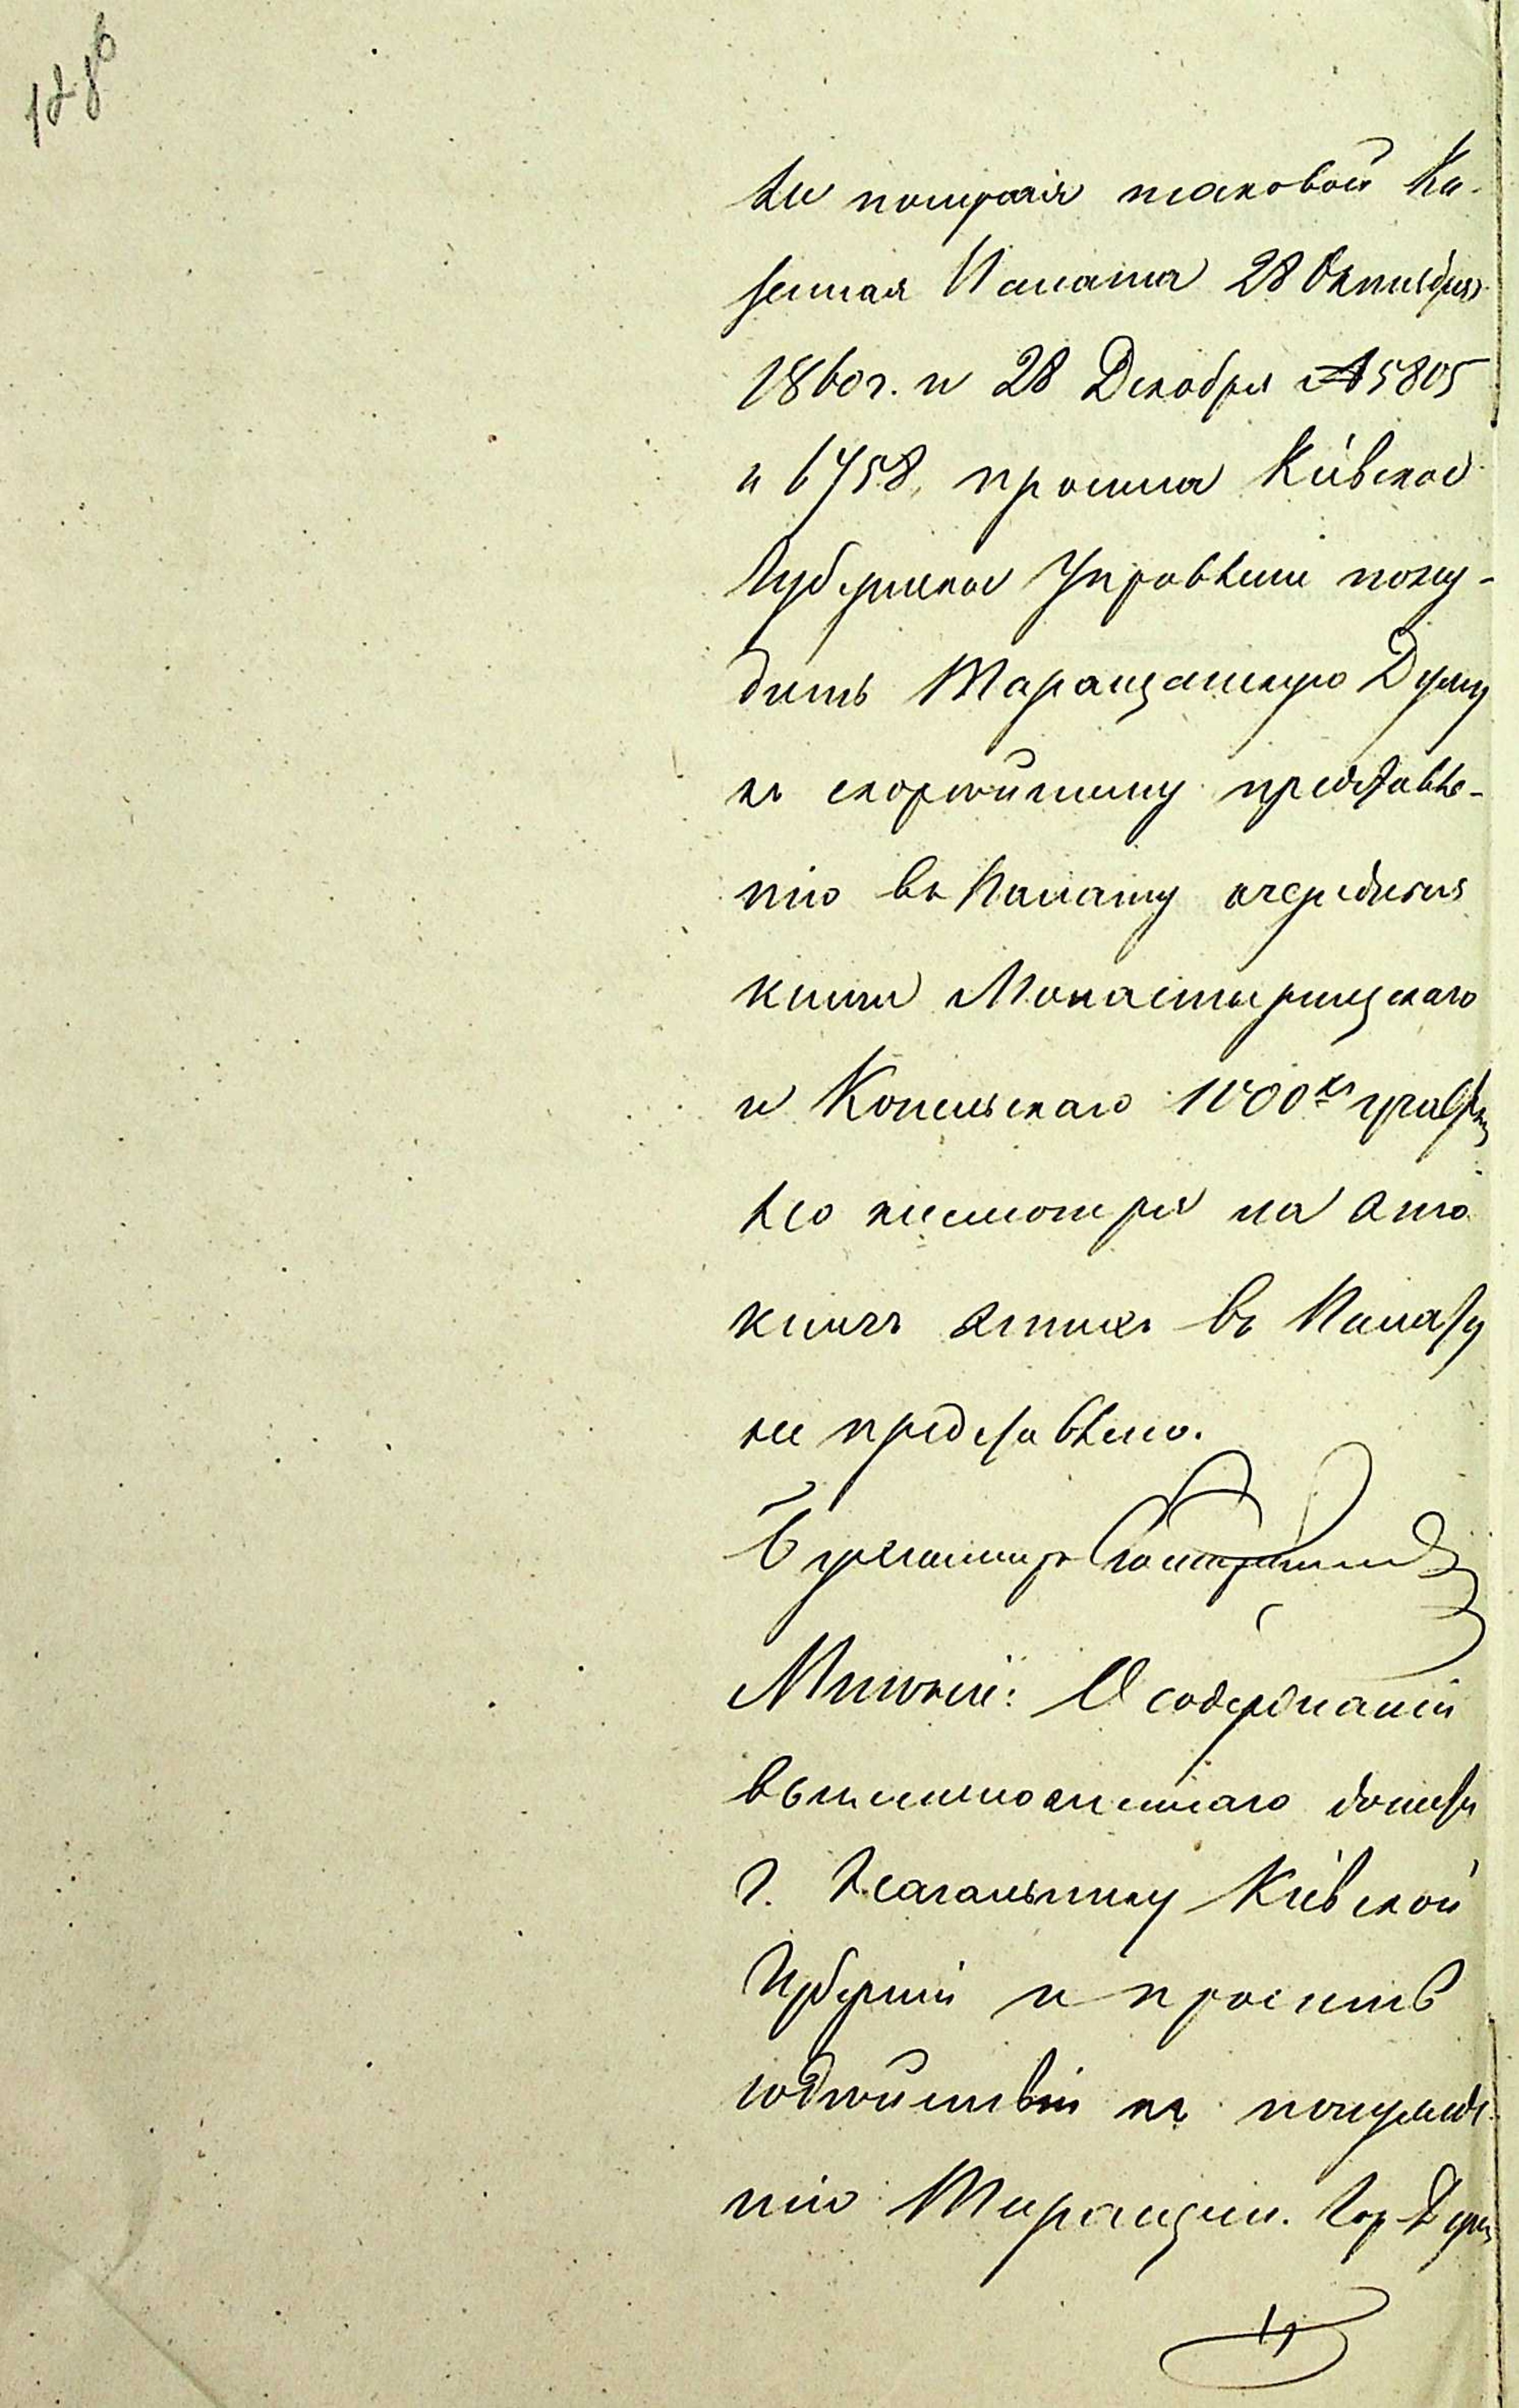 128б
ки таковой Ка-
зенная Палата 28 Октября
1860 г. и 28 Декабря № 5805
и 6758, просила Кіевское
Губернское Управленіе пону-
дить Таращанскую Думу
къ скорѣйшему представле-
нію въ Палату очередныя
книги Монастырищскаго
и Конельскаго 1000хъ участк.
Но несмотря на это
книгъ этихъ въ Палату
не представлено.
Бухгалтеръ
Мнѣніе: О содержаніи
вышеизложеннаго донести
Г. Начальнику Кіевской
Губерніи и просить
содѣйствія къ понужде-
нію Таращан. Гор. Думу